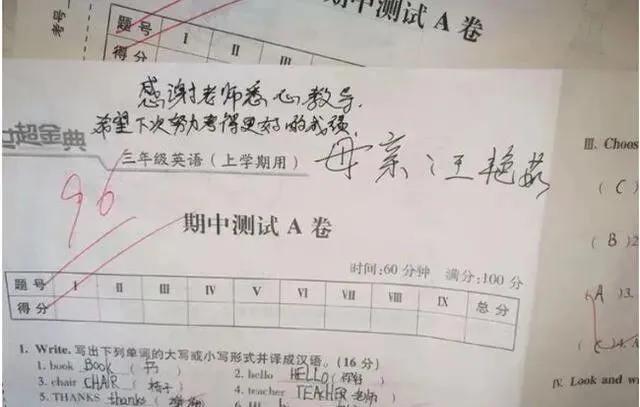 考号
题号 I II III
得分
期中测试 A 卷
感谢老师悉心教导,
希望下次努力考得更好的成绩
母亲:汪艳茹
超金典
三年级英语(上学期用)
96
期中测试 A 卷
时间:60分钟 满分:100分
题号 I II III IV V VI VII VIII IX 总分
得分
I. Write. 写出下列单词的大写或小写形式并译成汉语。(16分)
1. book BOOK (书) 2. hello HELLO (
3. chair CHAIR (椅子) 4. teacher TEACHER 老师)
5. THANKS thanks ( 6.
III. Choos
( C )
( B )2
( A )3.
IV. Look and w